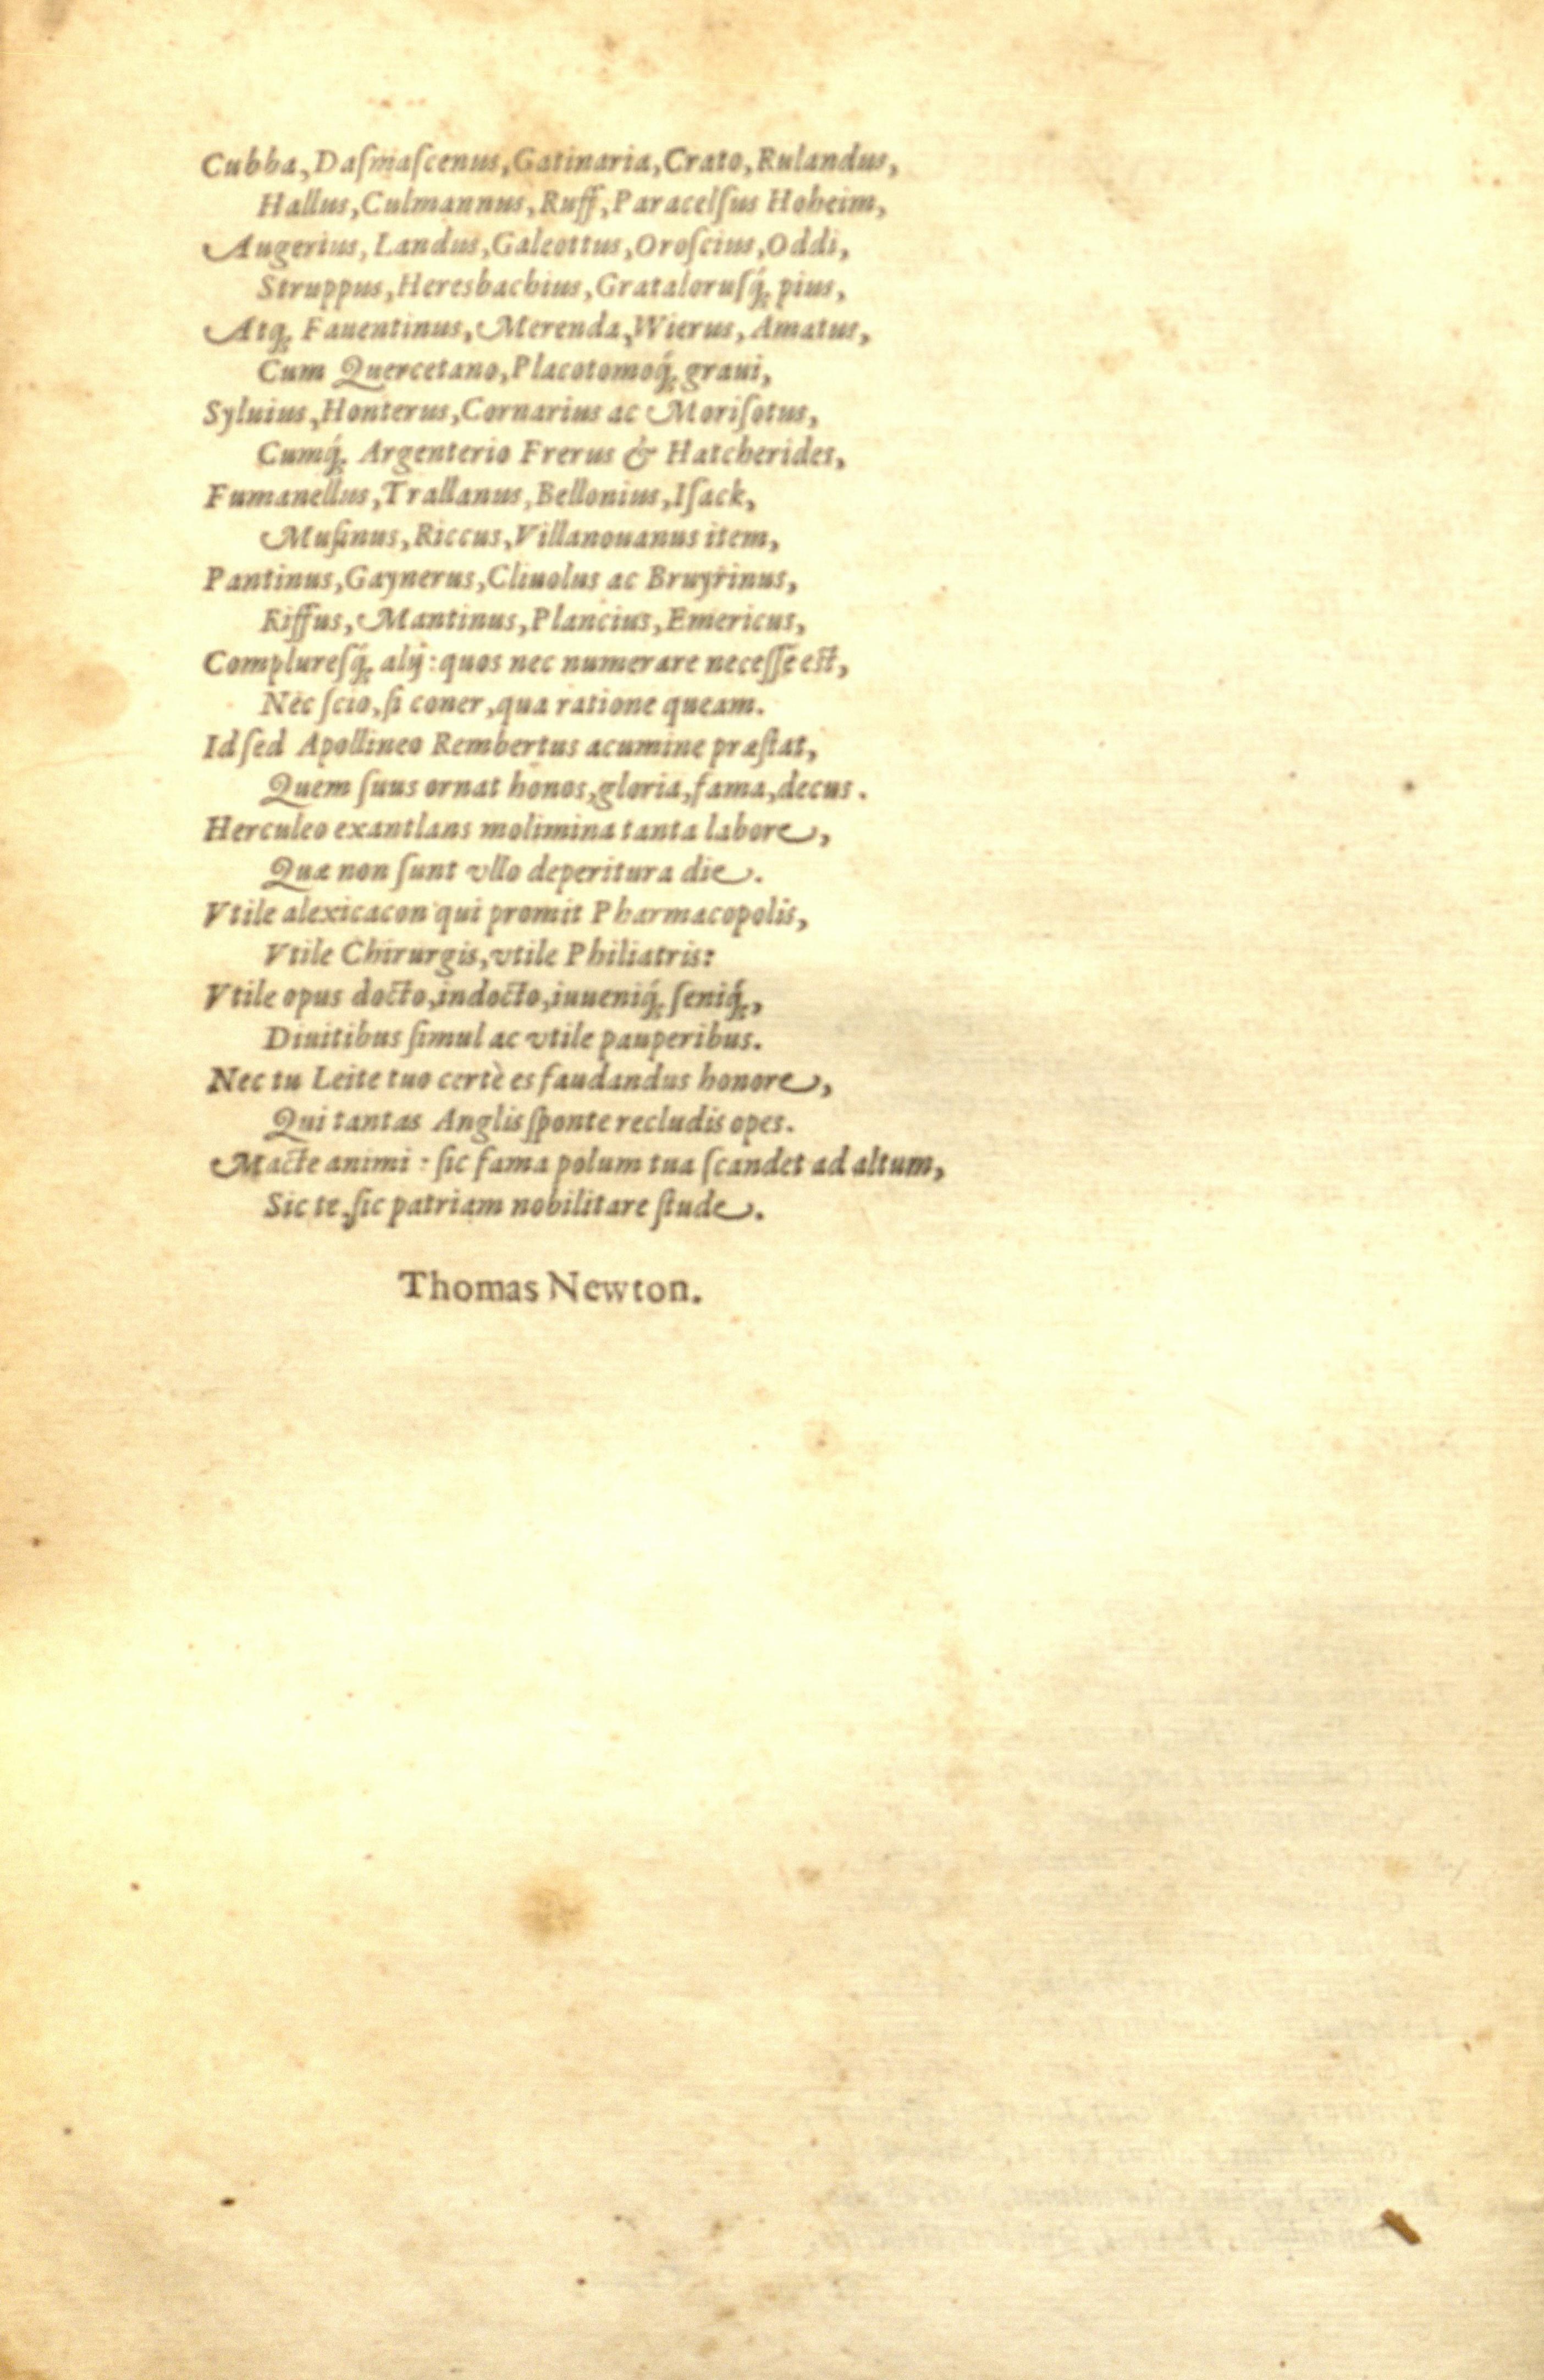 Cubba, Daſmaſcenus, Gatinaria, Crato, Rulandus,
Hallus, Culmannus, Ruff, Paracelſus Hoheim,
Augerius, Landus, Galeottus, Oroſcius, Oddi,
Struppus, Heresbachius, Gratalorusq́; pius,
Atq; Fauentinus, Merenda, Wierus, Amatus,
Cum Quercetano, Placotomoq́; graui,
Syluius, Honterus, Cornarius ac Moriſotus,
Cumq́; Argenterio Frerus & Hatcherides,
Fumanellus, Trallanus, Bellonius, Iſack,
Muſinus, Riccus, Villanouanus item,
Pantinus, Gaynerus, Cliuolus ac Bruyrinus,
Riffus, Mantinus, Plancius, Emericus,
Complureſq́; alij: quos nec numerare neceſſe eſt,
Nec ſcio, ſi coner, qua ratione queam.
Id ſed Apollineo Rembertus acumine præſtat,
Quem ſuus ornat honos, gloria, fama, decus.
Herculeo exantlans molimina tanta labore,
Quæ non ſunt vllo deperitura die.
Vtile alexicacon qui promit Pharmacopolis,
Vtile Chirurgis, vtile Philiatris:
Vtile opus docto, indocto, iuueniq́; ſeniq́;,
Diuitibus ſimul ac vtile pauperibus.
Nec tu Leite tuo certè es faudandus honore,
Qui tantas Anglis ſponte recludis opes.
Macte animi: ſic fama polum tua ſcandet ad altum,
Sic te, ſic patriam nobilitare ſtude.
Thomas Newton.